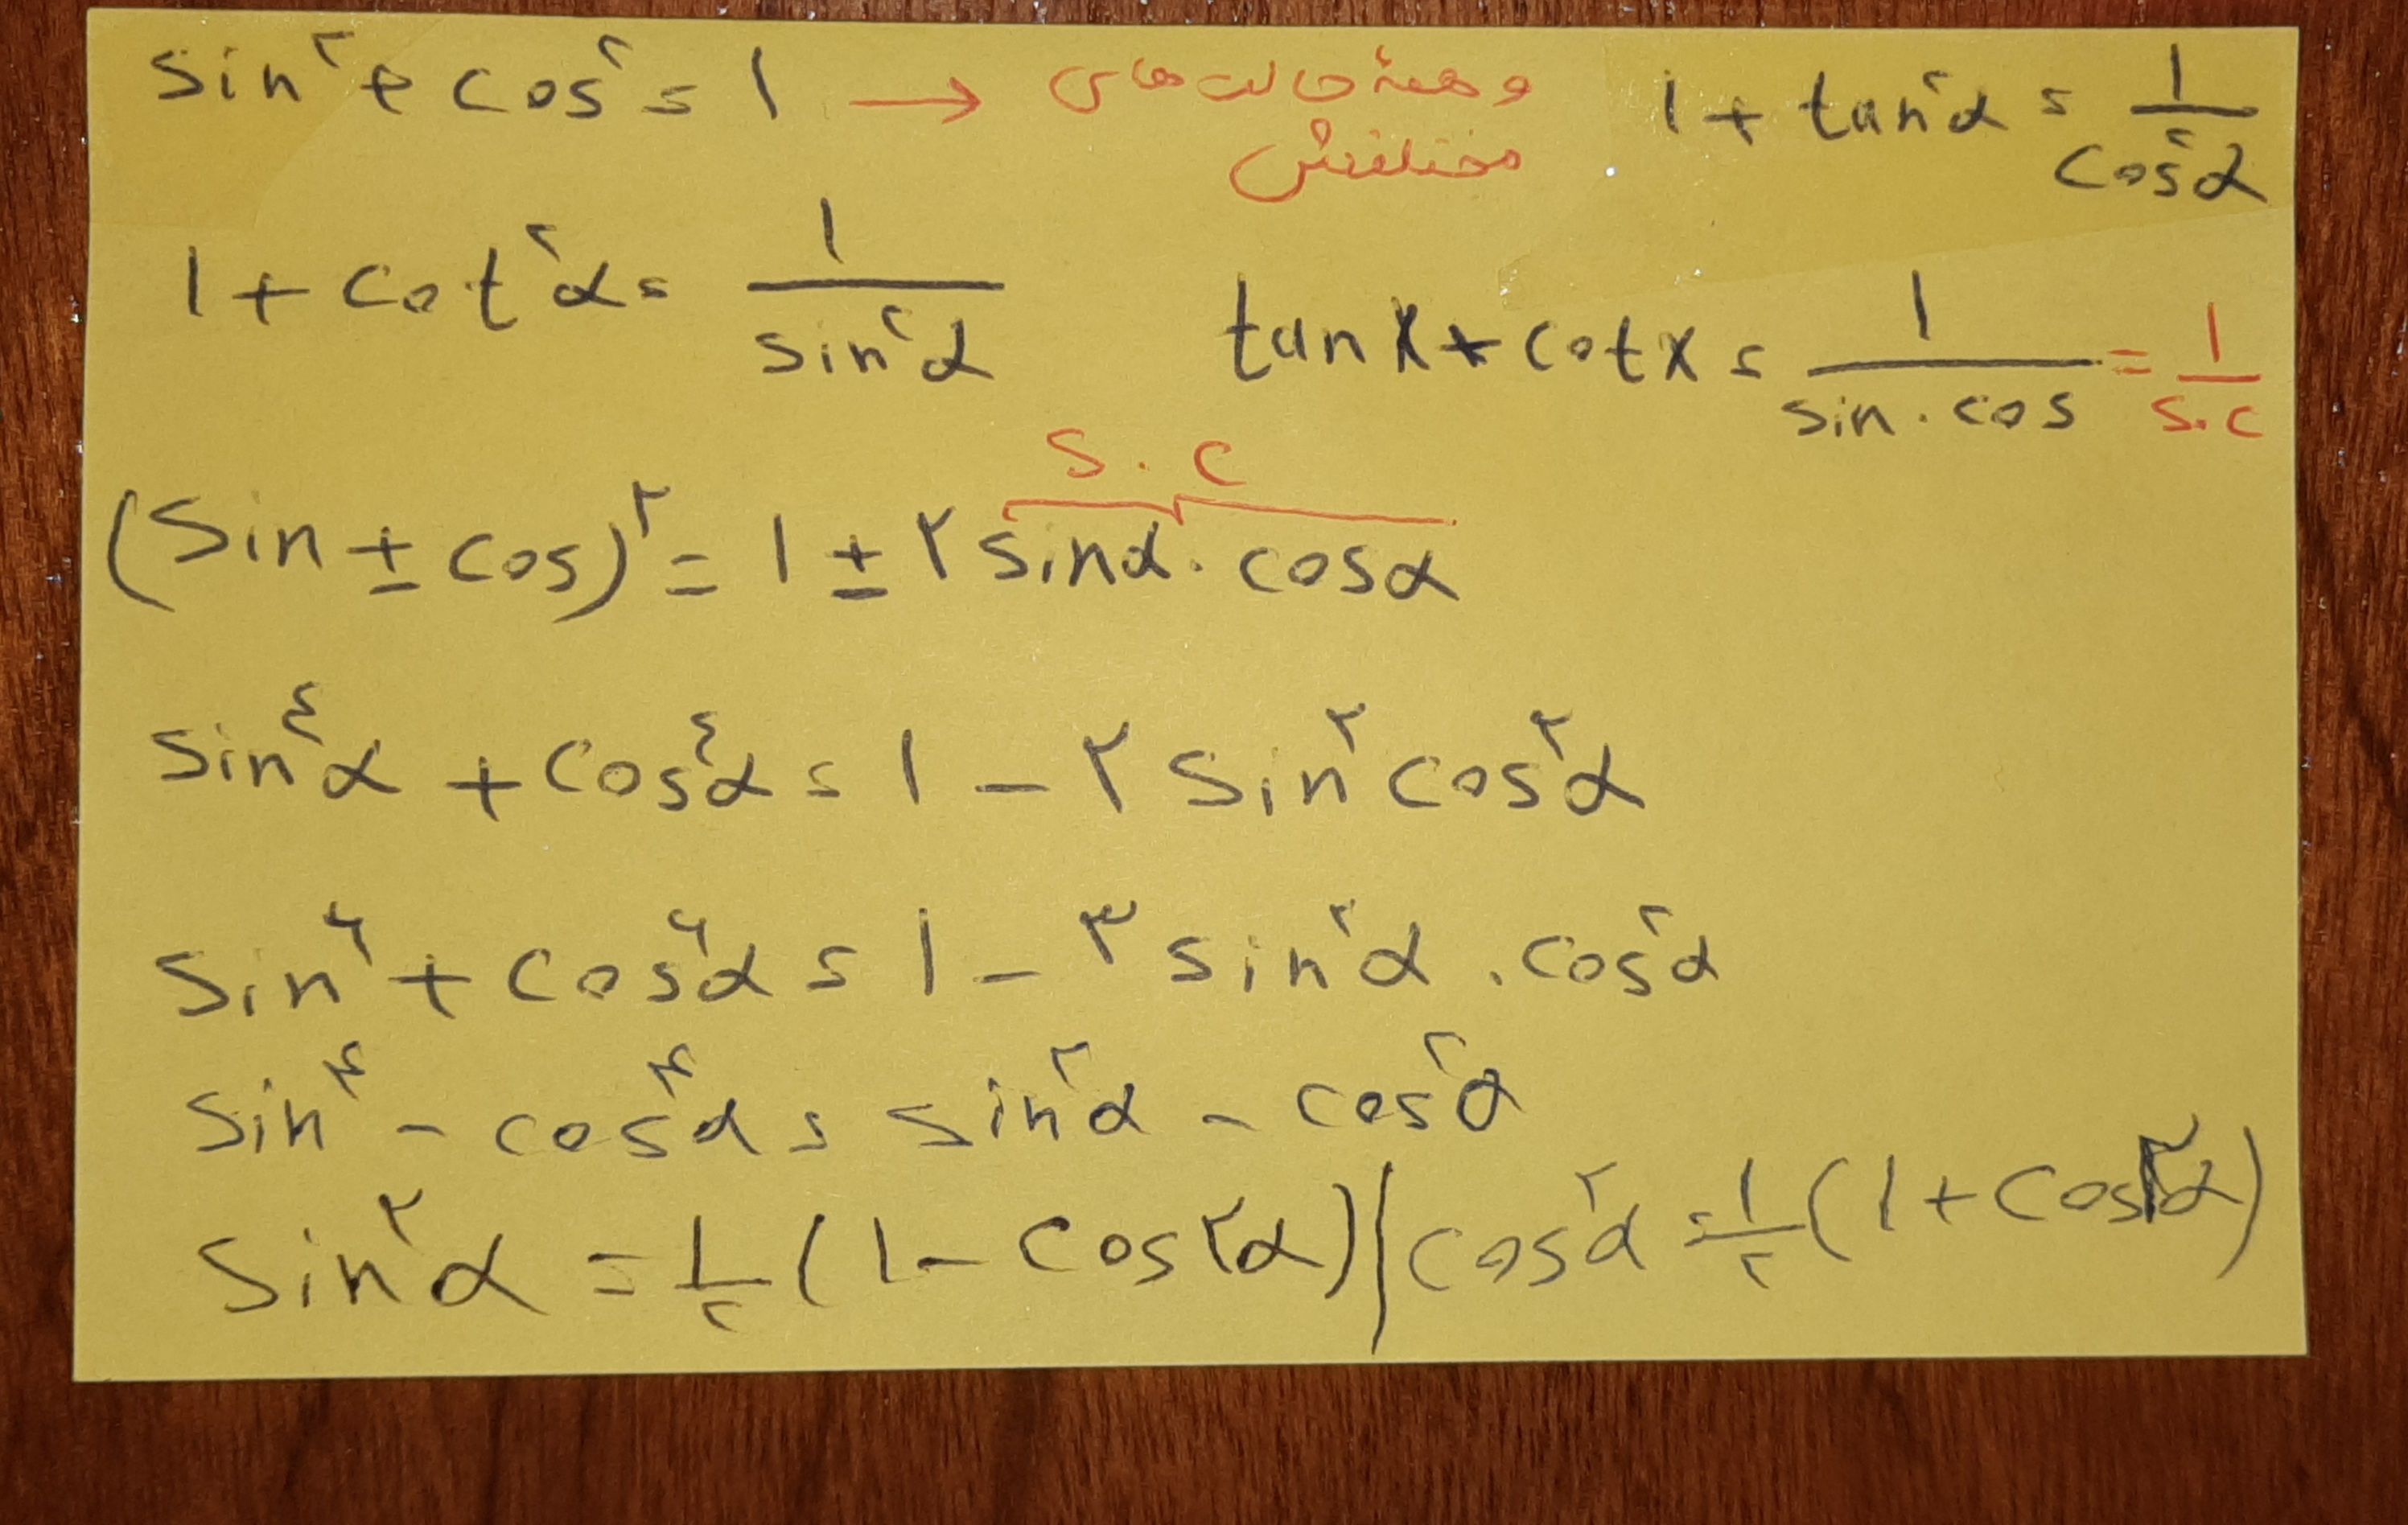 sin² + cos² = 1 → و همهٔ حالت‌های مختلفش
1 + tan²α = 1/cos²α
1 + cot²α = 1/sin²α
tan x + cot x = 1/(sin . cos) = 1/(s.c)
s . c
(sin ± cos)^۲ = 1 ± ۲ sinα . cosα
sin^۴α + cos^۴α = 1 - ۲ sin^۲ cos^۲α
sin^۶ + cos^۶α = 1 - ۳ sin^۲α . cos^۲α
sin^۴ - cos^۴α = sin^۲α - cos^۲α
sin^۲α = 1/۲ (1 - cos۲α) | cos^۲α = 1/۲ (1 + cos۲α)